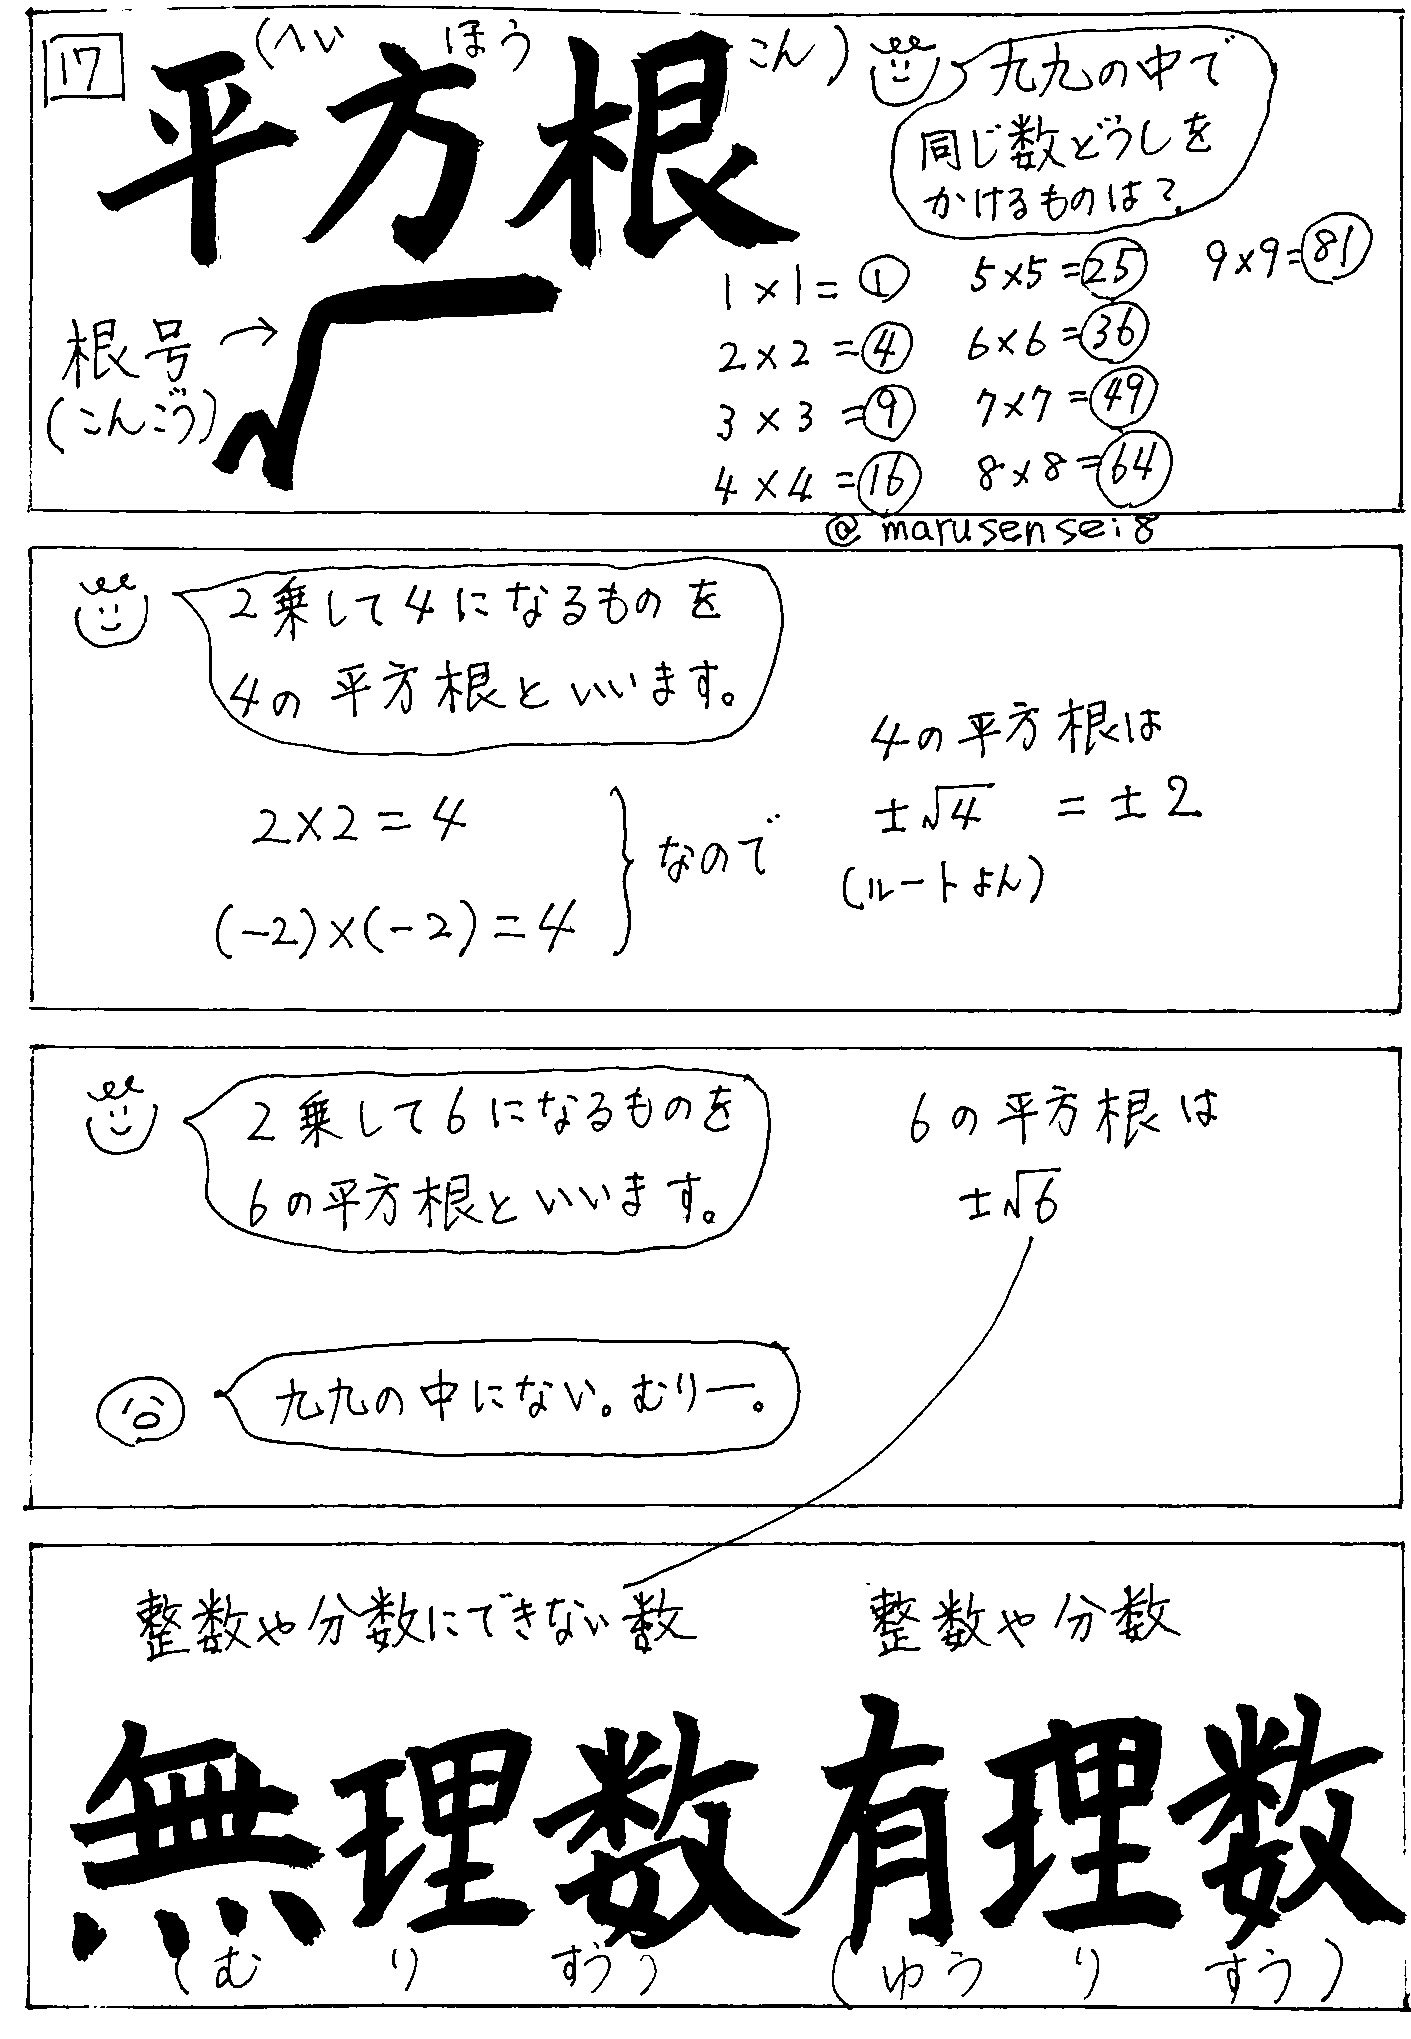 17
(へい ほう こん)
平方根
九九の中で
同じ数どうしを
かけるものは?
根号 → √
(こんごう)
1×1=①
2×2=④
3×3=⑨
4×4=⑯
5×5=㉕
6×6=㊱
7×7=㊾
8×8=64
9×9=81
@marusensei8
2乗して4になるものを
4の平方根といいます。
2×2=4
(-2)×(-2)=4
なので
4の平方根は
±√4 =±2
(ルートよん)
2乗して6になるものを
6の平方根といいます。
6の平方根は
±√6
九九の中にない。むりー。
整数や分数にできない数
無理数
(む り すう)
整数や分数
有理数
(ゆう り すう)